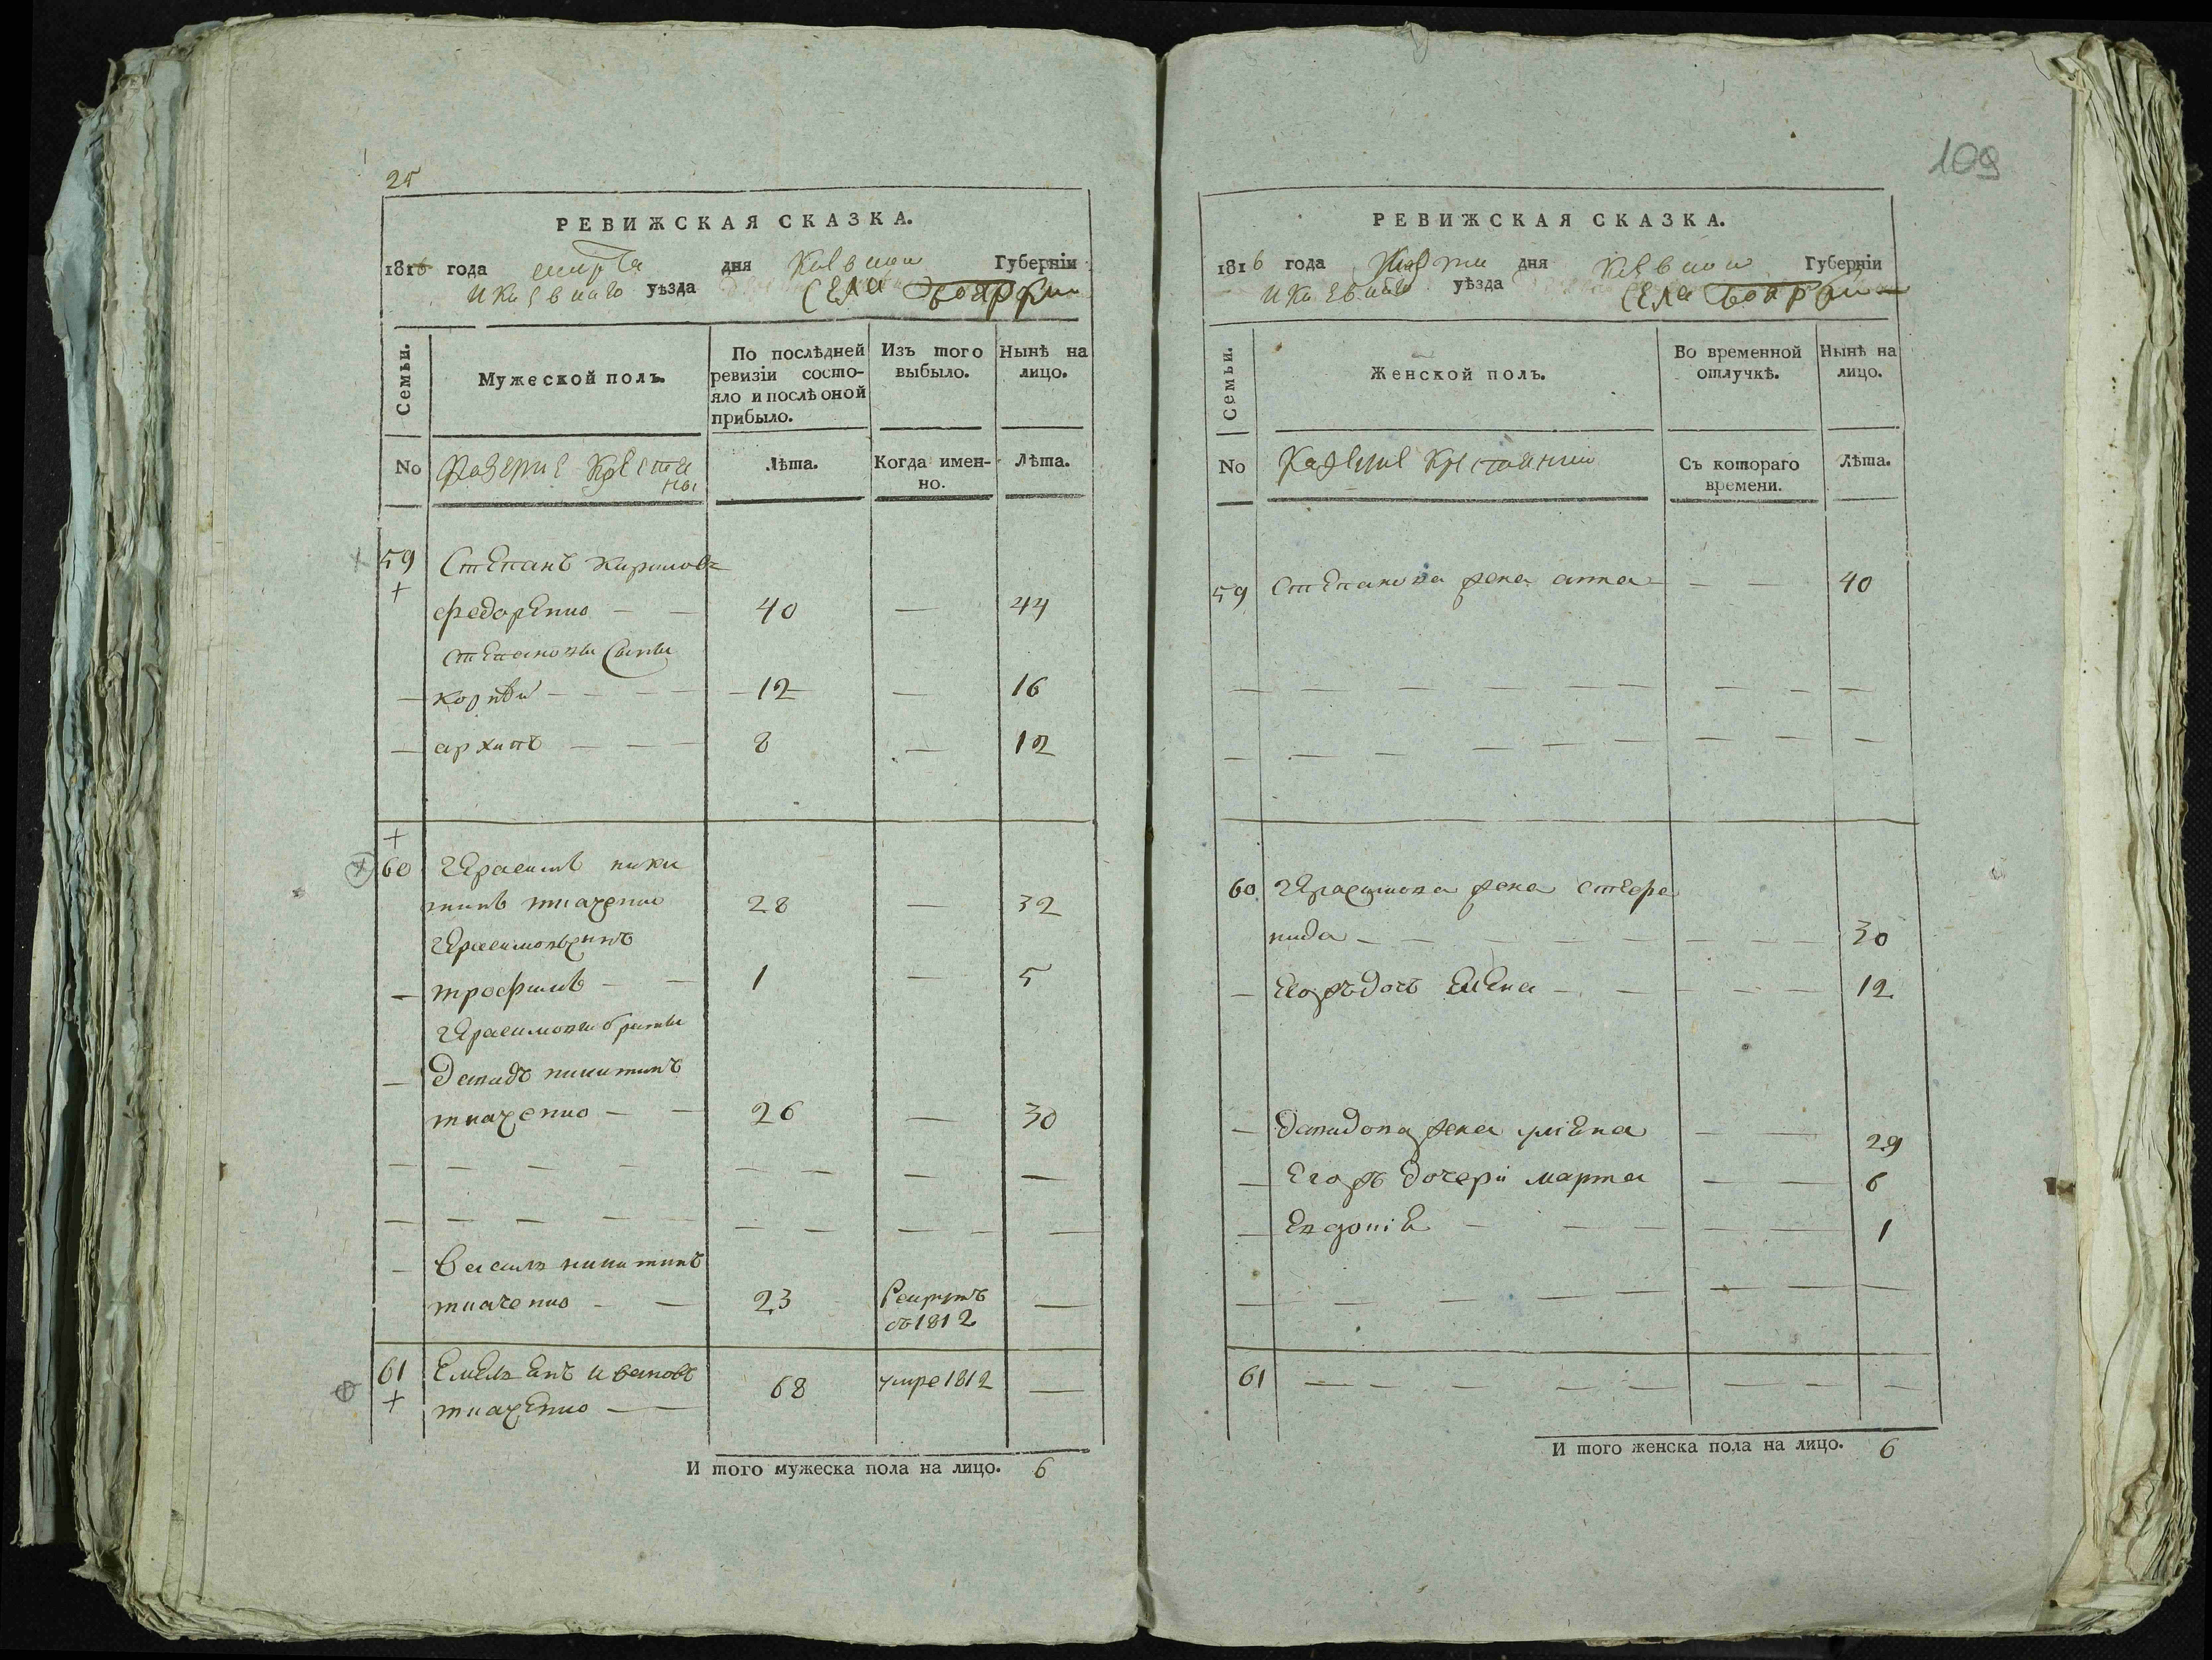 25
РЕВИЖСКАЯ СКАЗКА.
1816 года марта дня Киевской Губерніи
и Киевскаго уѣзда Села Боярки
Семьи.
Мужеской полъ.
По послѣдней ревизіи состояло и послѣ оной прибыло.
Изъ того выбыло.
Нынѣ на лицо.
No
Казенние Крестяны
Лѣта.
Когда именно.
Лѣта.
59 Степанъ Кириловъ
федоренко — — 40 — 44
степановы Сыны
— корнѣй — — — 12 — 16
— архипъ — — — 8 — 12
60 Герасимъ ники
тинъ ткаченко 28 — 32
Герасимовъ сынъ
— трофимъ — — 1 — 5
Герасимови братьи
— Давидъ никитинъ
ткаченко — — 26 — 30
— Василь никитинъ
ткаченко — — 23 Рекрутъ —
съ 1812
61 Емельянъ Ивановъ
ткаченко — — 68 умре 1812 —
И того мужеска пола на лицо. 6
109
РЕВИЖСКАЯ СКАЗКА.
1816 года Марта дня Киевской Губерніи
и Киевскаго уѣзда Села Боярки
Семьи.
Женской полъ.
Во временной отлучкѣ.
Нынѣ на лицо.
No
Казенние Крестянки
Съ котораго времени.
Лѣта.
59 Степанова жена анна — — 40
60 Герасимова жена стефа
нида — — — 30
— Егожъ дочь Елена — — — 12
— Давидова жена уліяна — — 29
— Егожъ дочери марта — — 6
— Евдокія — — — 1
61 — — — — —
И того женска пола на лицо. 6